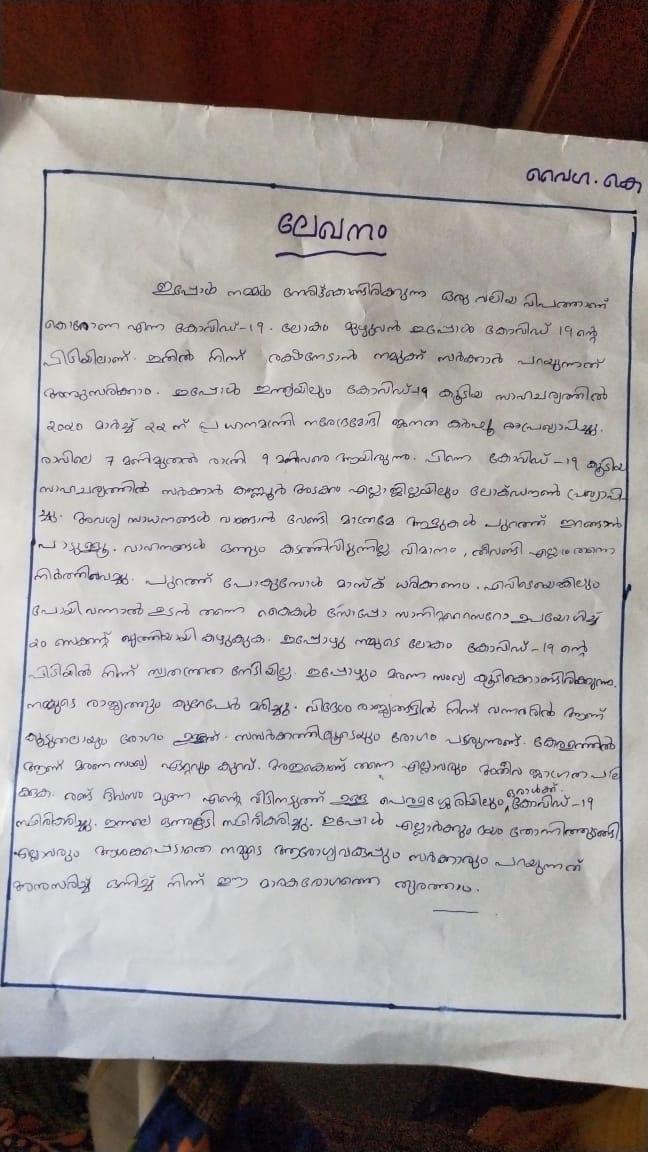 വൈഗ. കെ
ലേഖനം
ഇപ്പോൾ നമ്മൾ നേരിട്ടുകൊണ്ടിരിക്കുന്ന ഒരു വലിയ വിപത്താണ്
കൊറോണ എന്ന കോവിഡ്-19. ലോകം മുഴുവൻ ഇപ്പോൾ കോവിഡ് 19 ന്റെ
പിടിയിലാണ്. ഇതിൽ നിന്ന് രക്ഷനേടാൻ നമുക്ക് സർക്കാർ പറയുന്നത്
അനുസരിക്കാം. ഇപ്പോൾ ഇന്ത്യയിലും കോവിഡ്-19 കൂടിയ സാഹചര്യത്തിൽ
2020 മാർച്ച് 22 ന് പ്രധാനമന്ത്രി നരേന്ദ്രമോദി ജനത കർഫ്യൂ പ്രഖ്യാപിച്ചു.
രാവിലെ 7 മണിമുതൽ രാത്രി 9 മണിവരെ ആയിരുന്നു. പിന്നെ കോവിഡ്-19 കൂടിയ
സാഹചര്യത്തിൽ സർക്കാർ കണ്ണൂർ അടക്കം എല്ലാ ജില്ലയിലും ലോക്ഡൗൺ പ്രഖ്യാപി
ച്ചു. അവശ്യ സാധനങ്ങൾ വാങ്ങാൻ വേണ്ടി മാത്രമേ ആളുകൾ പുറത്ത് ഇറങ്ങാൻ
പാടുള്ളൂ. വാഹനങ്ങൾ ഒന്നും കടത്തിവിടുന്നില്ല വിമാനം, തീവണ്ടി എല്ലാം തന്നെ
നിർത്തിവെച്ചു. പുറത്ത് പോകുമ്പോൾ മാസ്ക് ധരിക്കണം. എവിടെയെങ്കിലും
പോയി വന്നാൽ ഉടൻ തന്നെ കൈകൾ സോപ്പോ സാനിറ്റൈസറോ ഉപയോഗിച്ച്
20 സെക്കന്റ് വൃത്തിയായി കഴുകുക. ഇപ്പോഴും നമ്മുടെ ലോകം കോവിഡ്-19 ന്റെ
പിടിയിൽ നിന്ന് സ്വതന്ത്രത നേടിയില്ല. ഇപ്പോഴും മരണ സംഖ്യ കൂടിക്കൊണ്ടിരിക്കുന്നു.
നമ്മുടെ രാജ്യത്തും കുറേപേർ മരിച്ചു. വിദേശ രാജ്യങ്ങളിൽ നിന്ന് വന്നവരിൽ ആണ്
കൂടുതലായും രോഗം ഉള്ളത്. സമ്പർക്കത്തിലൂടെയും രോഗം പടരുന്നുണ്ട്. കേരളത്തിൽ
ആണ് മരണസംഖ്യ ഏറ്റവും കുറവ്. അതുകൊണ്ട് തന്നെ എല്ലാവരും അതീവ ജാഗ്രത പാലി
ക്കുക. രണ്ട് ദിവസം മുന്നേ എന്റെ വീടിനടുത്ത് ഉള്ള പെരളശ്ശേരിയിലും ഒരാൾക്ക് കോവിഡ്-19
സ്ഥിരീകരിച്ചു. ഇന്നലെ ഒന്നുകൂടി സ്ഥിരീകരിച്ചു. ഇപ്പോൾ എല്ലാർക്കും ഭയം തോന്നിത്തുടങ്ങി.
എല്ലാവരും ആശങ്കപ്പെടാതെ നമ്മുടെ ആരോഗ്യവകുപ്പും സർക്കാരും പറയുന്നത്
അനുസരിച്ച് ഒന്നിച്ച് നിന്ന് ഈ മാരകരോഗത്തെ തുരത്താം.